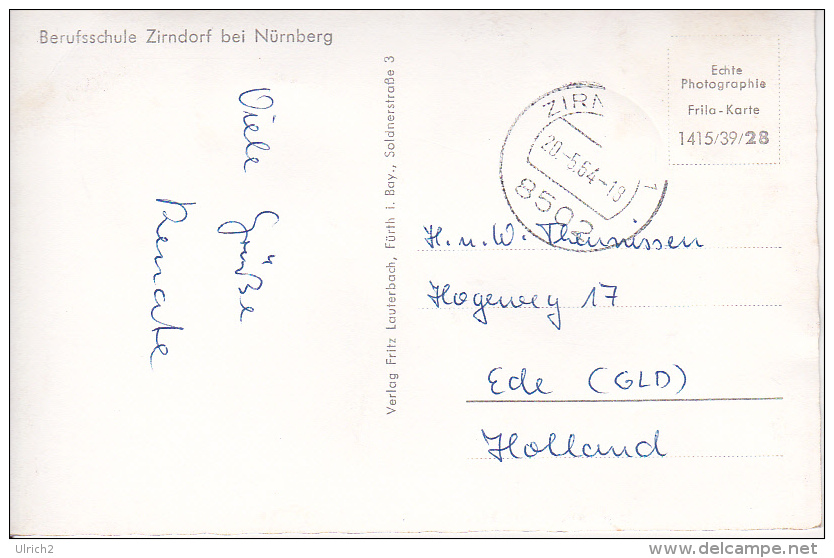 Berufsschule Zirndorf bei Nürnberg
Viele
Grüße
Renate
Verlag Fritz Lauterbach, Fürth i. Bay., Soldnerstraße 3
Echte
Photographie
Frila-Karte
1415/39/28
ZIRN
20.-5.64-18
1
8502
H. u. W. Theunissen
Hogeweg 17
Ede (GLD)
Holland
Ulrich2
delcampe.net